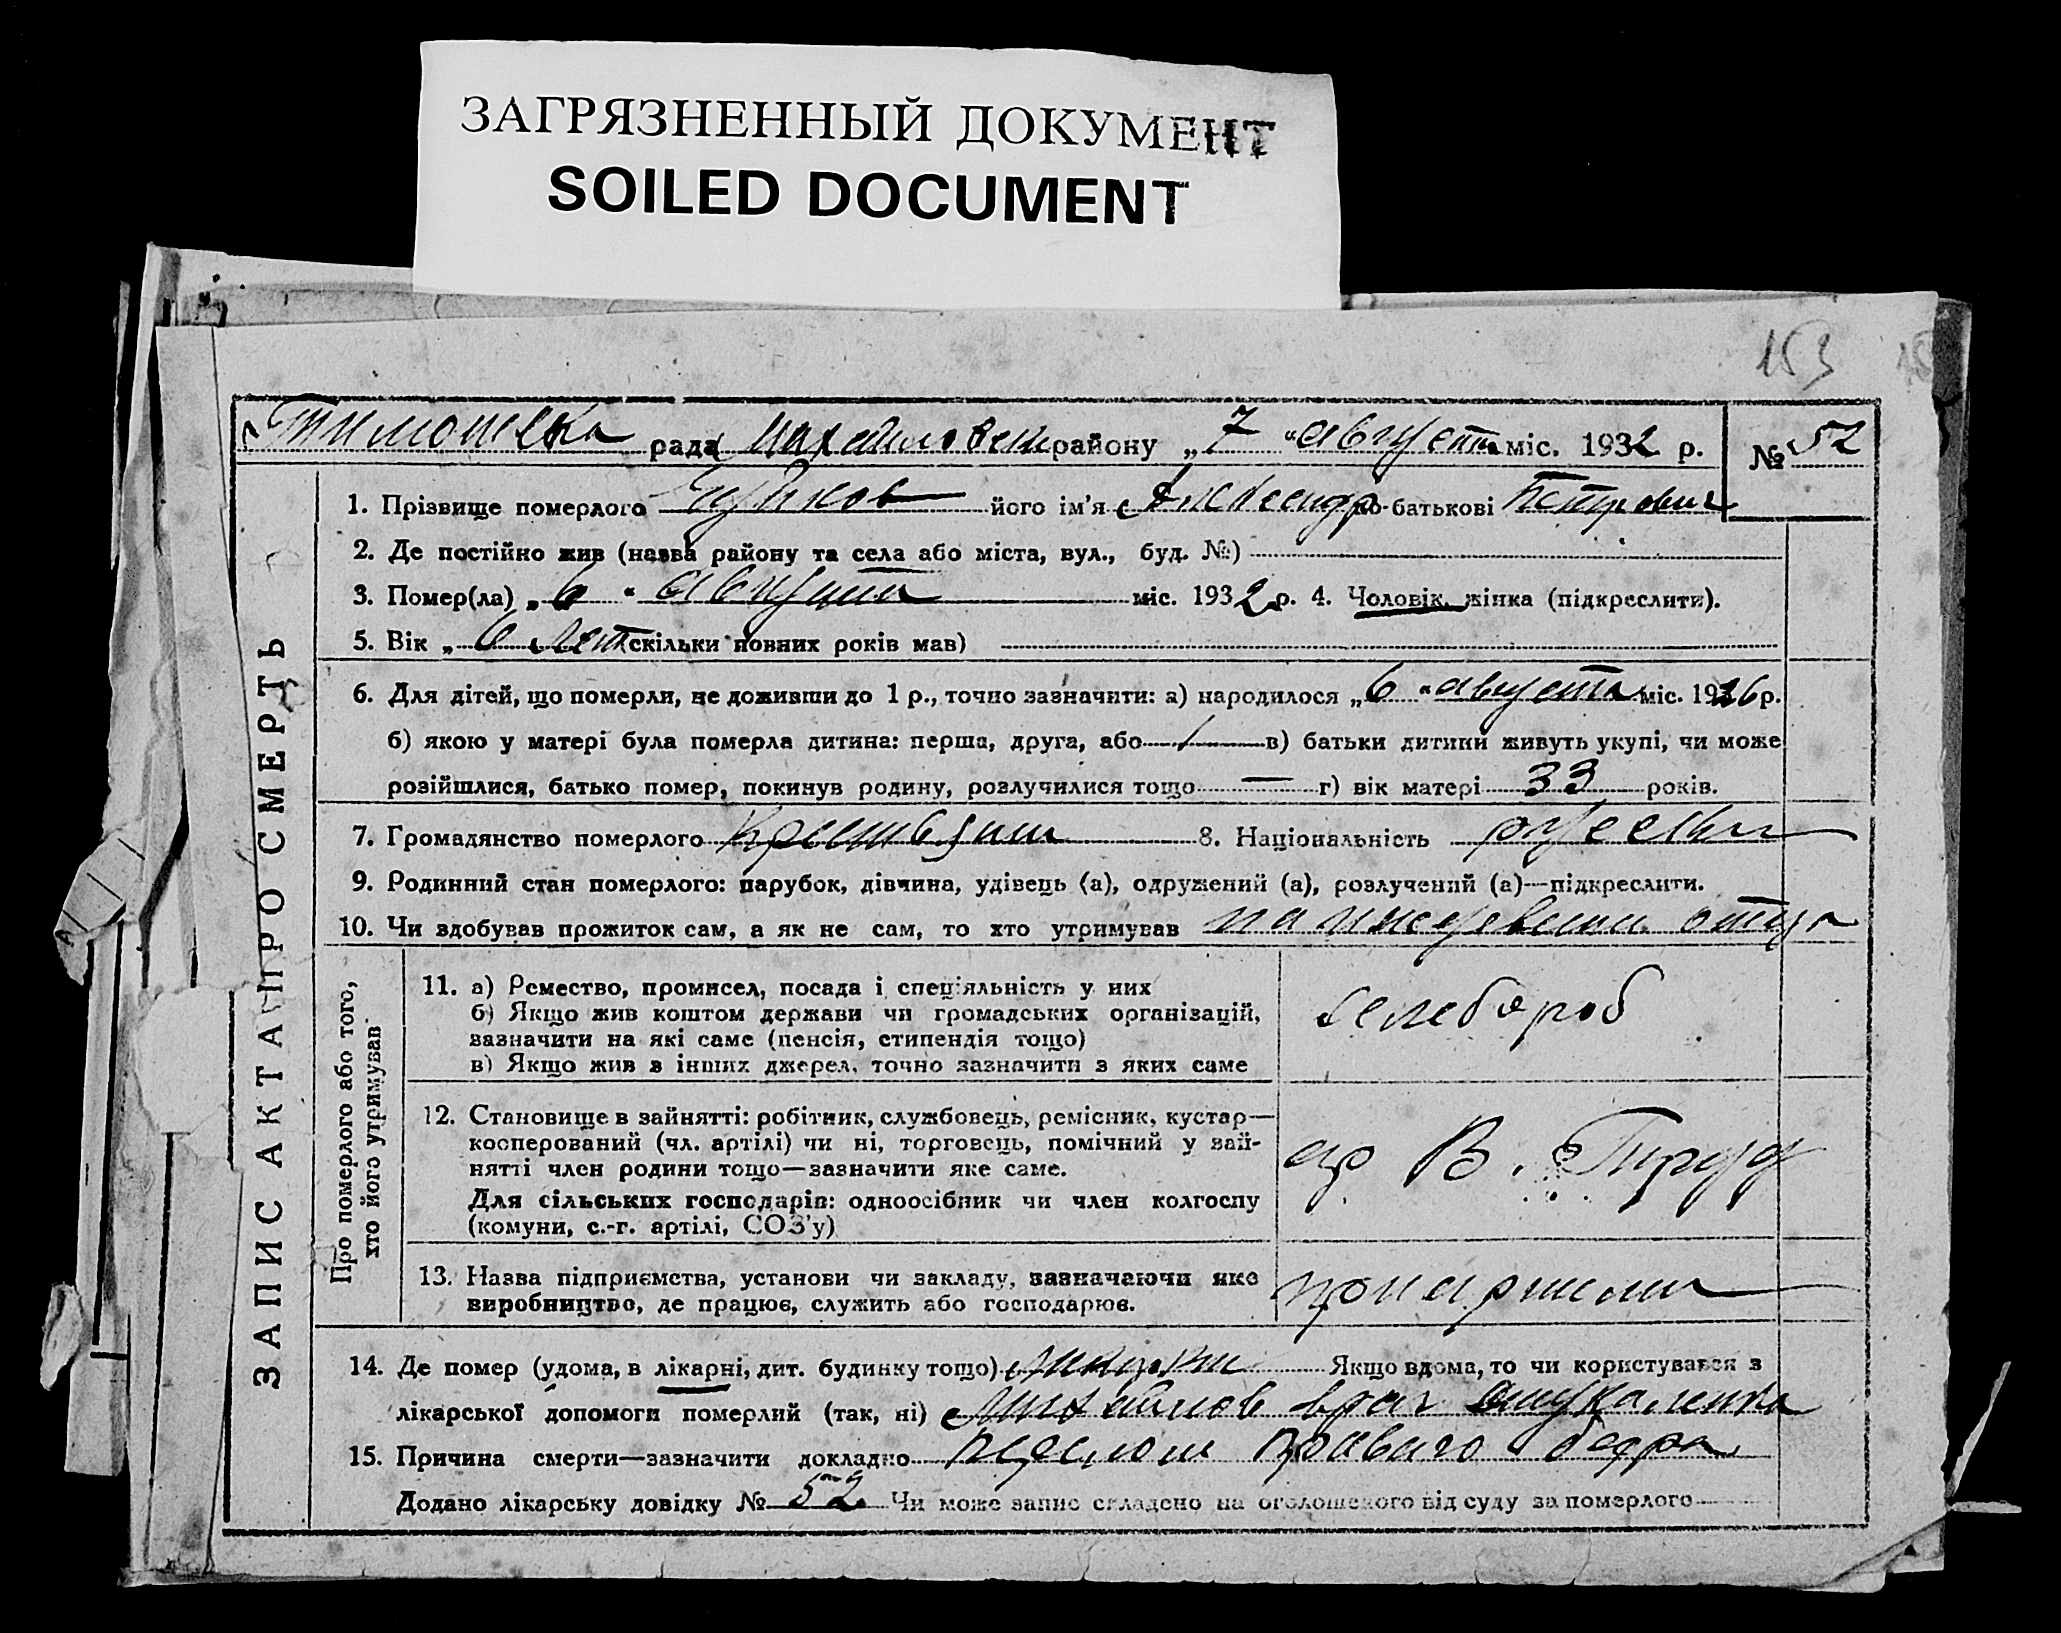 ЗАГРЯЗНЕННЫЙ ДОКУМЕНТ
SOILED DOCUMENT
153
Тимошевка рада Михайловск району „7“ августа міс. 1932 р. № 52
ЗАПИС АКТА ПРО СМЕРТЬ
1. Прізвище померлого його ім'я Александр по-батькові Петрович
2. Де постійно жив (назва району та села або міста, вул., буд. №)
3. Помер(ла) „6“ августа міс. 1932 р. 4. Чоловік, жінка (підкреслити).
5. Вік „6 лет скільки повних років мав)
6. Для дітей, що померли, не доживши до 1 р., точно зазначити: а) народилося „6“ августа міс. 1926 р.
б) якою у матері була померла дитина: перша, друга, або в) батьки дитини живуть укупі, чи може
розійшлися, батько помер, покинув родину, розлучилися тощо — г) вік матері 33 років.
7. Громадянство померлого 8. Національність
9. Родинний стан померлого: парубок, дівчина, удівець (а), одружений (а), розлучений (а)—підкреслити.
10. Чи здобував прожиток сам, а як не сам, то хто утримував на иждевении отца
Про померлого або того,
хто його утримував
11. а) Ремество, промисел, посада і спеціяльність у них
б) Якщо жив коштом держави чи громадських організацій,
зазначити на які саме (пенсія, стипендія тощо)
в) Якщо жив з інших джерел, точно зазначити з яких саме
12. Становище в зайнятті: робітник, службовець, ремісник, кустар—
косперований (чл. артілі) чи ні, торговець, помічний у зай-
нятті член родини тощо—зазначити яке саме.
Для сільських господарів: одноосібник чи член колгоспу
(комуни, с.-г. артілі, СОЗ'у)
ар В. Труд
13. Назва підприємства, установи чи закладу, зазначаючи яке
виробництво, де працює, служить або господарює.
14. Де помер (удома, в лікарні, дит. будинку тощо) Якщо вдома, то чи користувався з
лікарської допомоги померлий (так, ні) врач
15. Причина смерти—зазначити докладно правого бедра
Додано лікарську довідку № 52 Чи може запис складено на оголошеного від суду за померлого